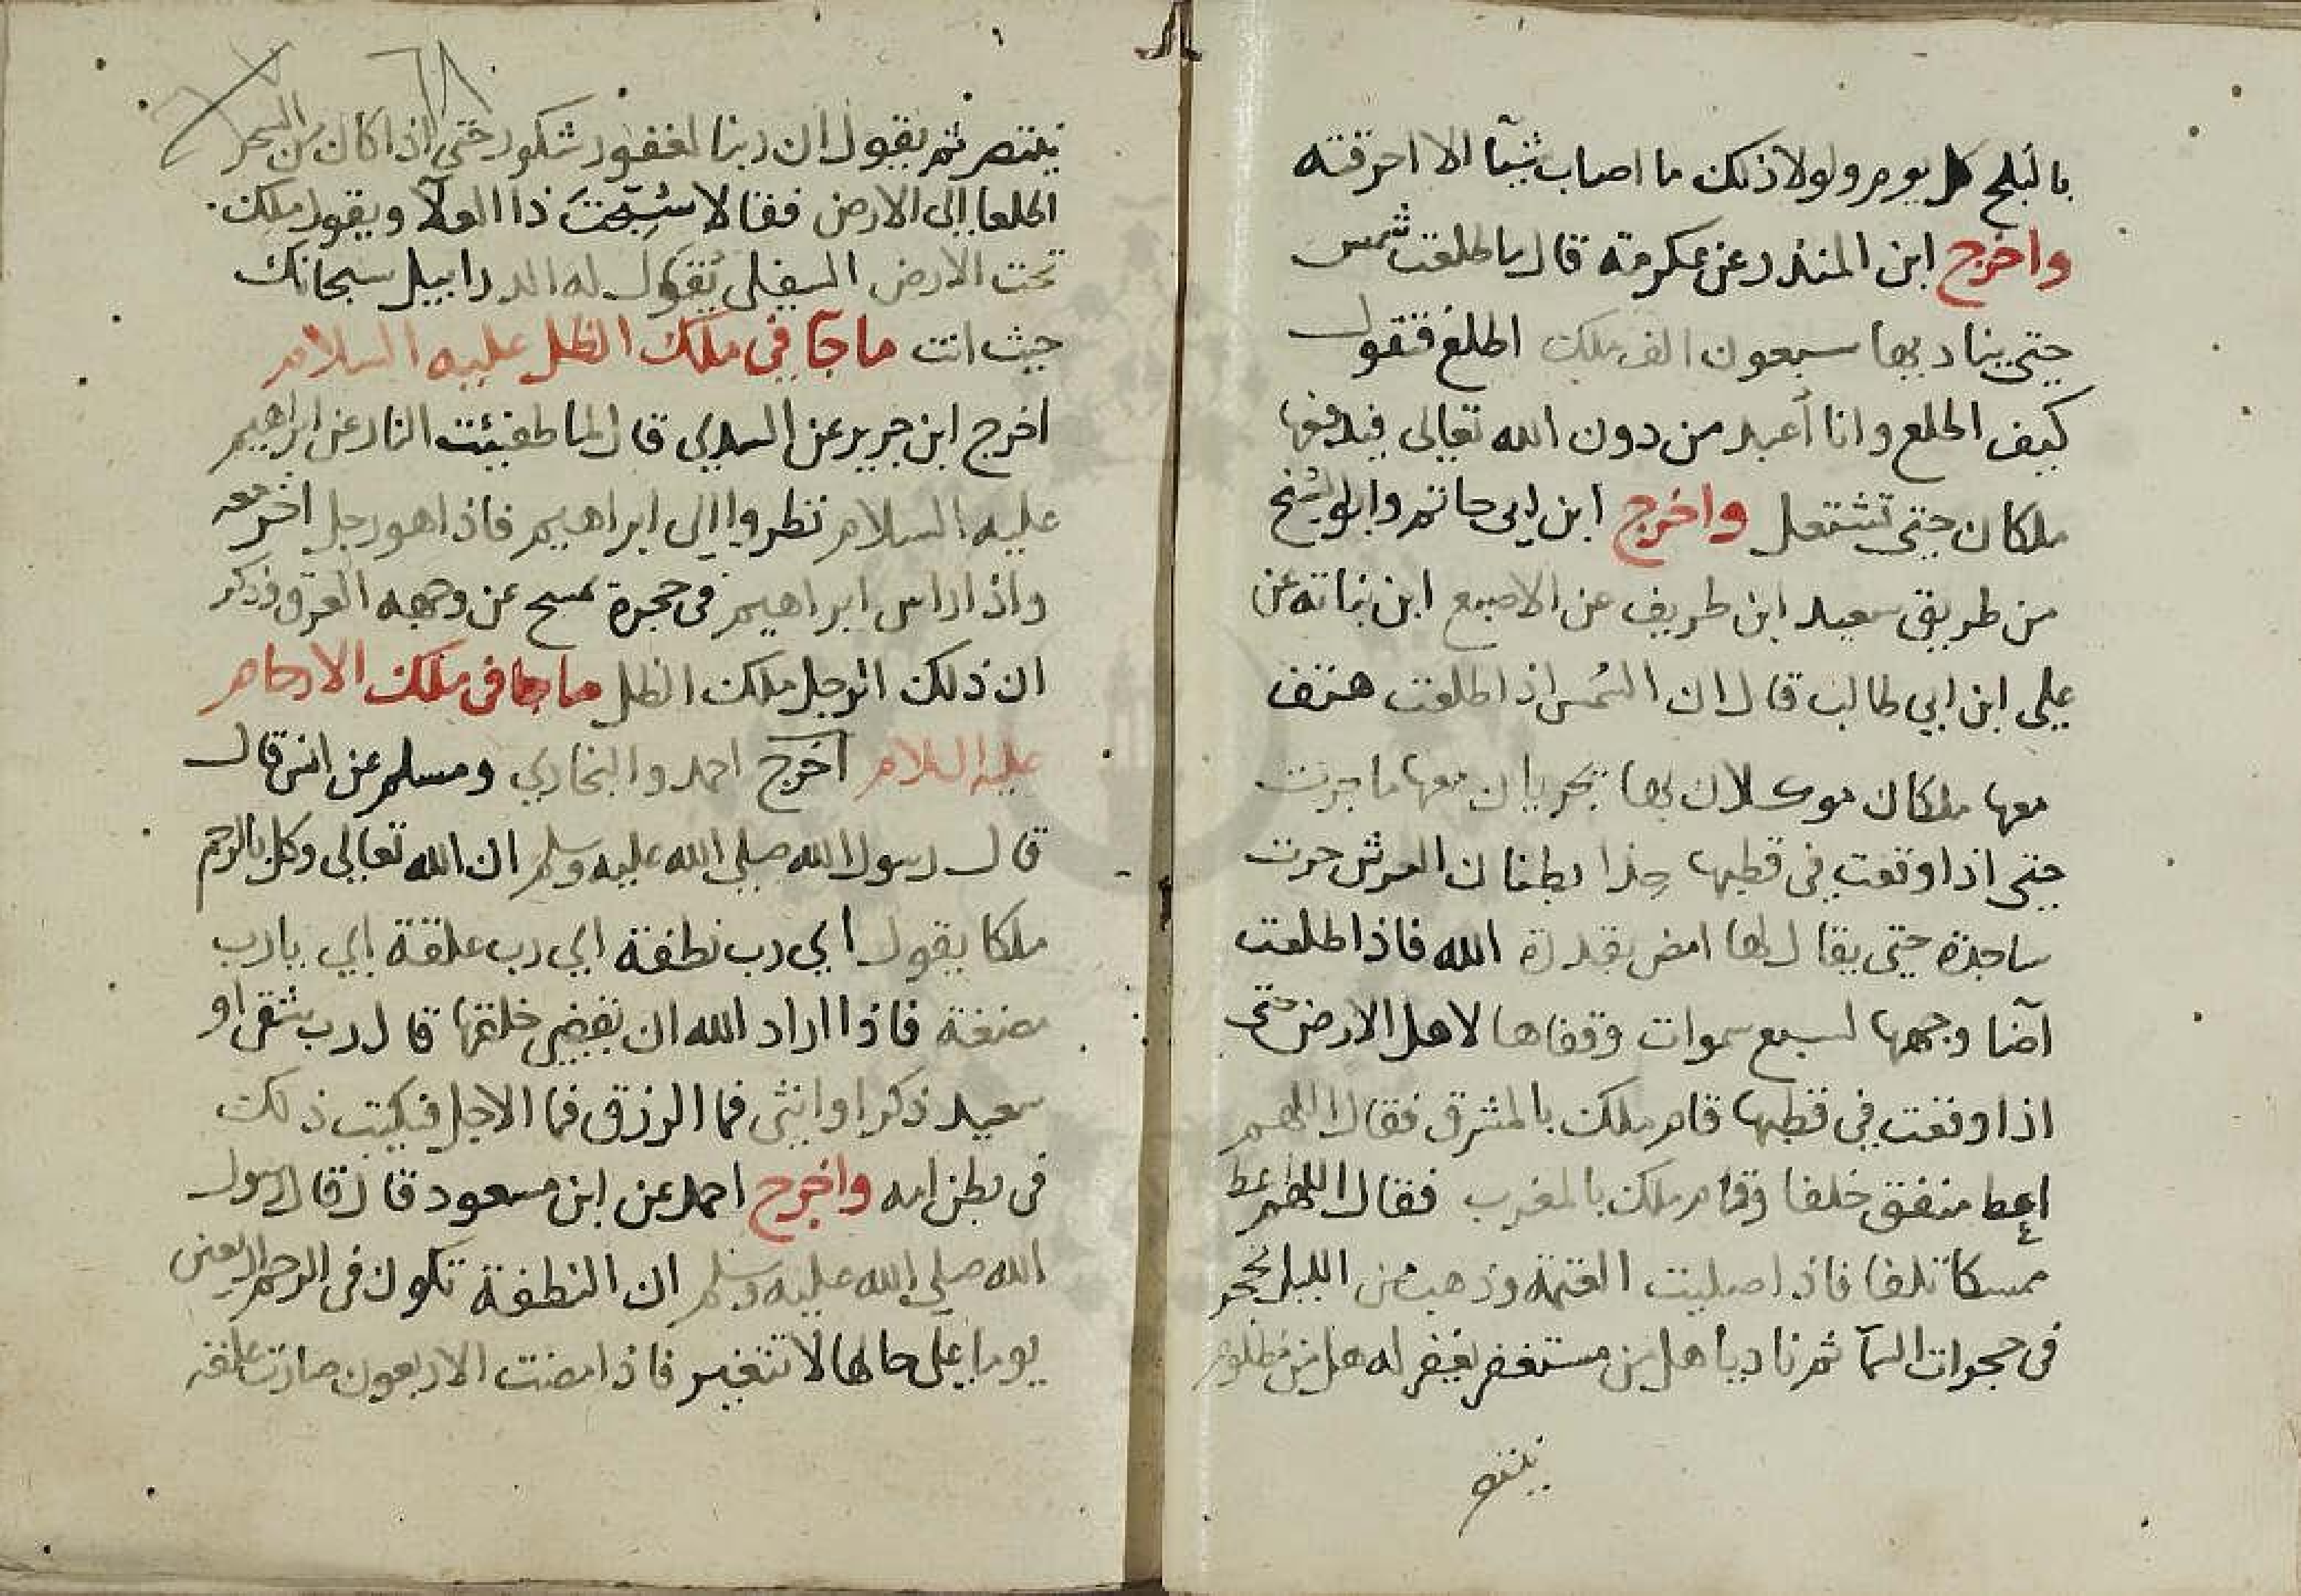 بالثلج كل يوم ولولا ذلك ما اصاب شيئا الا احرقته
واخرج ابن المنذر عن عكرمة قال ما طلعت شمس
حتى يناد بها سبعون الف ملك اطلع فتقول
كيف اطلع وانا أعبد من دون الله تعالى فيدفعها
ملكان حتى تشتعل واخرج ابن ابي حاتم وابو الشيخ
من طريق سعيد ابن طريف عن الاصبع ابن نباتة عن
علي ابن ابي طالب قال ان الشمس اذا طلعت هتف
معها ملكان موكلان بها يجريان معها ما جرت
حتى اذا وقعت في قطبها حذا بطنان العرش خرت
ساجدة حتى يقال لها امض بقدرة الله فاذا طلعت
آضا وجهها لسبع سموات وقفاها لاهل الارض حتى
اذا وقفت في قطبها قام ملك بالمشرق فقال اللهم
اعط منفق خلفا وقام ملك بالمغرب فقال اللهم اعط
ممسكا تلفا فاذا صليت العتمة وذهب من الليل
في حجوات السمآ ثم ناديا هل من مستغفر يغفر له هل من مظلوم
ينتصر
٦٨
ينتصر ثم يقول ان ربنا لغفور شكور حتى اذا كان من السحر
اطلعا الى الارض فقالا سبحت ذا العلا ويقول ملك
تحت الارض السفلى يقول له الدرابيل سبحانك
حيث انت ما جآ في ملك الظل عليه السلام
اخرج ابن جرير عن السدي قال لما طفيئت النار عن ابراهيم
عليه السلام نظروا الى ابراهيم فاذا هو رجل اخر معه
واذا راس ابراهيم في حجرة يمسح عن وجهه العرق وذكر
ان ذلك الرجل ملك الظل ما جا في ملك الارحام
عليه السلام اخرج احمد والبخاري ومسلم عن انس قال
قال رسول الله صلى الله عليه وسلم ان الله تعالى وكل بالرحم
ملكا يقول اي رب نطفة اي رب علقة اي يارب
مضغة فاذا اراد الله ان يقضي خلقها قال رب شقي او
سعيد ذكر او انثى فما الرزق فما الاجل فيكتب ذلك
في بطن امه واخرج احمد عن ابن مسعود قال قال رسول
الله صلى الله عليه وسلم ان النطفة تكون في الرحم اربعين
يوما على حالها لا تتغير فاذا مضت الاربعون صارت علقة